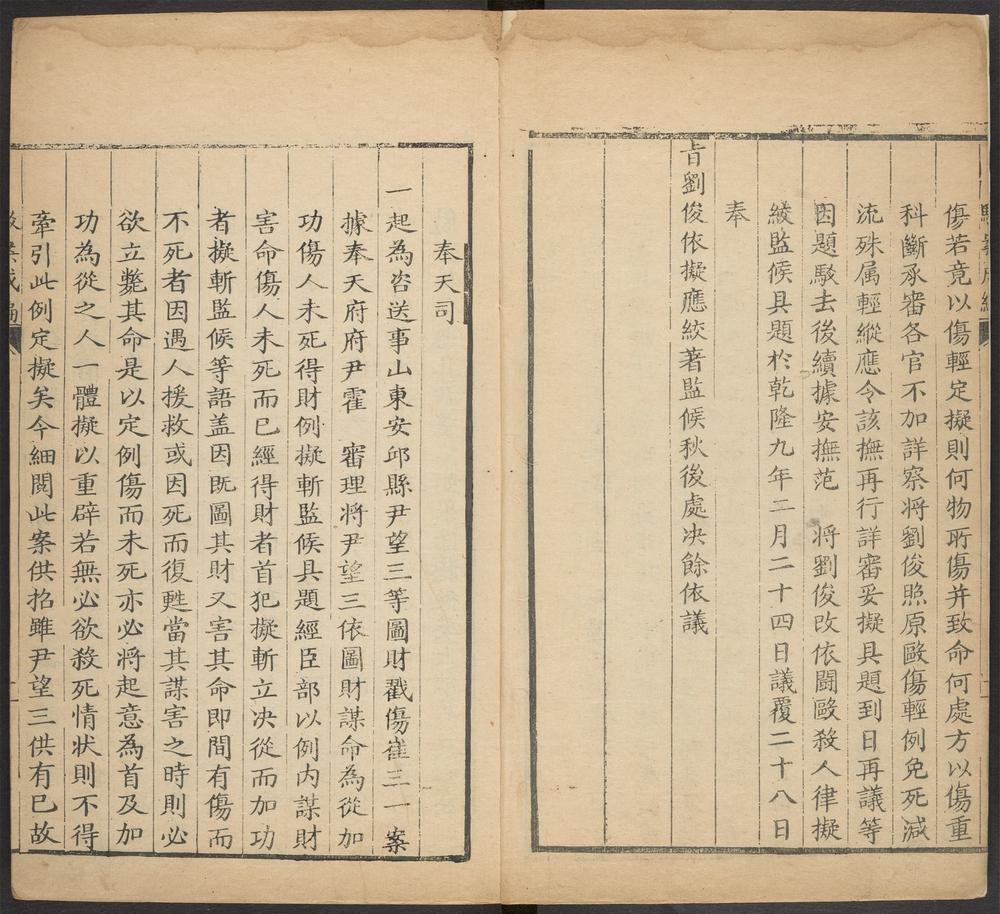 傷若竟以傷輕定擬則何物所傷并致命何處方以傷重
科斷承審各官不加詳察將劉俊照原毆傷輕例免死減
流殊属輕縱應令該撫再行詳審妥擬具題到日再議等
因題駁去後續據安撫范　將劉俊改依鬪毆殺人律擬
絞監候具題於乾隆九年三月二十四日議覆二十八日
奉
旨劉俊依擬應絞著監候秋後處决餘依議
奉天司
一起為咨送事山東安邱縣尹望三等圖財戳傷崔三一案
據奉天府府尹霍　審理將尹望三依圖財謀命為從加
功傷人未死得財例擬斬監候具題經臣部以例内謀財
害命傷人未死而已經得財者首犯擬斬立决從而加功
者擬斬監候等語盖因既圖其財又害其命即間有傷而
不死者因遇人援救或因死而復甦當其謀害之時則必
欲立斃其命是以定例傷而未死亦必將起意為首及加
功為從之人一體擬以重辟若無必欲殺死情状則不得
牽引此例定擬矣今細閱此案供招雖尹望三供有已故